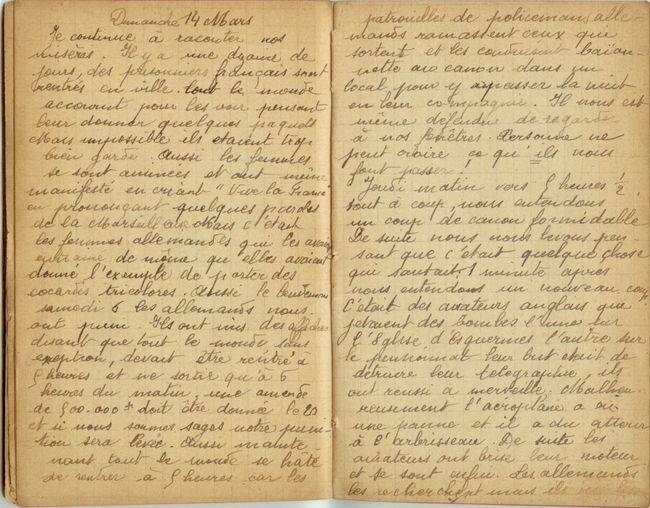 Dimanche 14 Mars
Je continue à raconter nos
misères. Il y a une dizaine de
jours, des prisonniers français sont
rentrés en ville. tout le monde
accourut pour les voir pensant
leur donner quelques paquets
Mais impossible ils étaient trop
bien gardé. Aussi les femmes
se sont amincés et ont même
manifesté en criant "Vive la France"
en prononçant quelques paroles
de la Marseillaise. Mais c'était
les femmes allemandes qui les avaient
entrainé de même qu'elles avaient
donné l'exemple de porter des
cocardes tricolores. Aussi le lendemain
samedi 6 les allemands nous
ont puni. Ils ont mis des affiches
disant que tout le monde sans
exeption, devait être rentré à
5 heures et ne sortir qu'à 5
heures du matin, une amende
de 500.000 f doit être donné le 20
et si nous sommes sages notre puni-
tion sera levée. Aussi mainte
nant tout le monde se hâte
de rentrer à 5 heures car les
patrouilles de policemans, alle-
mands ramassent ceux qui
sortent et les conduisent baïon-
nette au canon dans un
local pour y passer la nuit
en leur compagnie. Il nous est
même défendu de regarder
à nos fenêtres. Personne ne
peut croire ce qu'ils nous
font passer.
Jeudi matin vers 5 heures 1/2
tout à coup, nous entendons
un coup de canon formidable
De suite nous nous levons pen-
sant que c'était quelque chose
qui sautait. 1 minute après
nous entendons un nouveau coup
C'était des aviateurs anglais qui
jetaient des bombes l'une sur
l'Eglise d'Esquermes l'autre sur
le pensionnat leur but était de
détruire leur télégraphie, ils
ont réussi à merveille. Malheu-
reusement l'aéroplane a eu
une panne et il a du atterir
à l'arbrisseau. De suite les
aviateurs ont brisé leur moteur
et se sont enfui. Les allemands
les recherchent mais ils